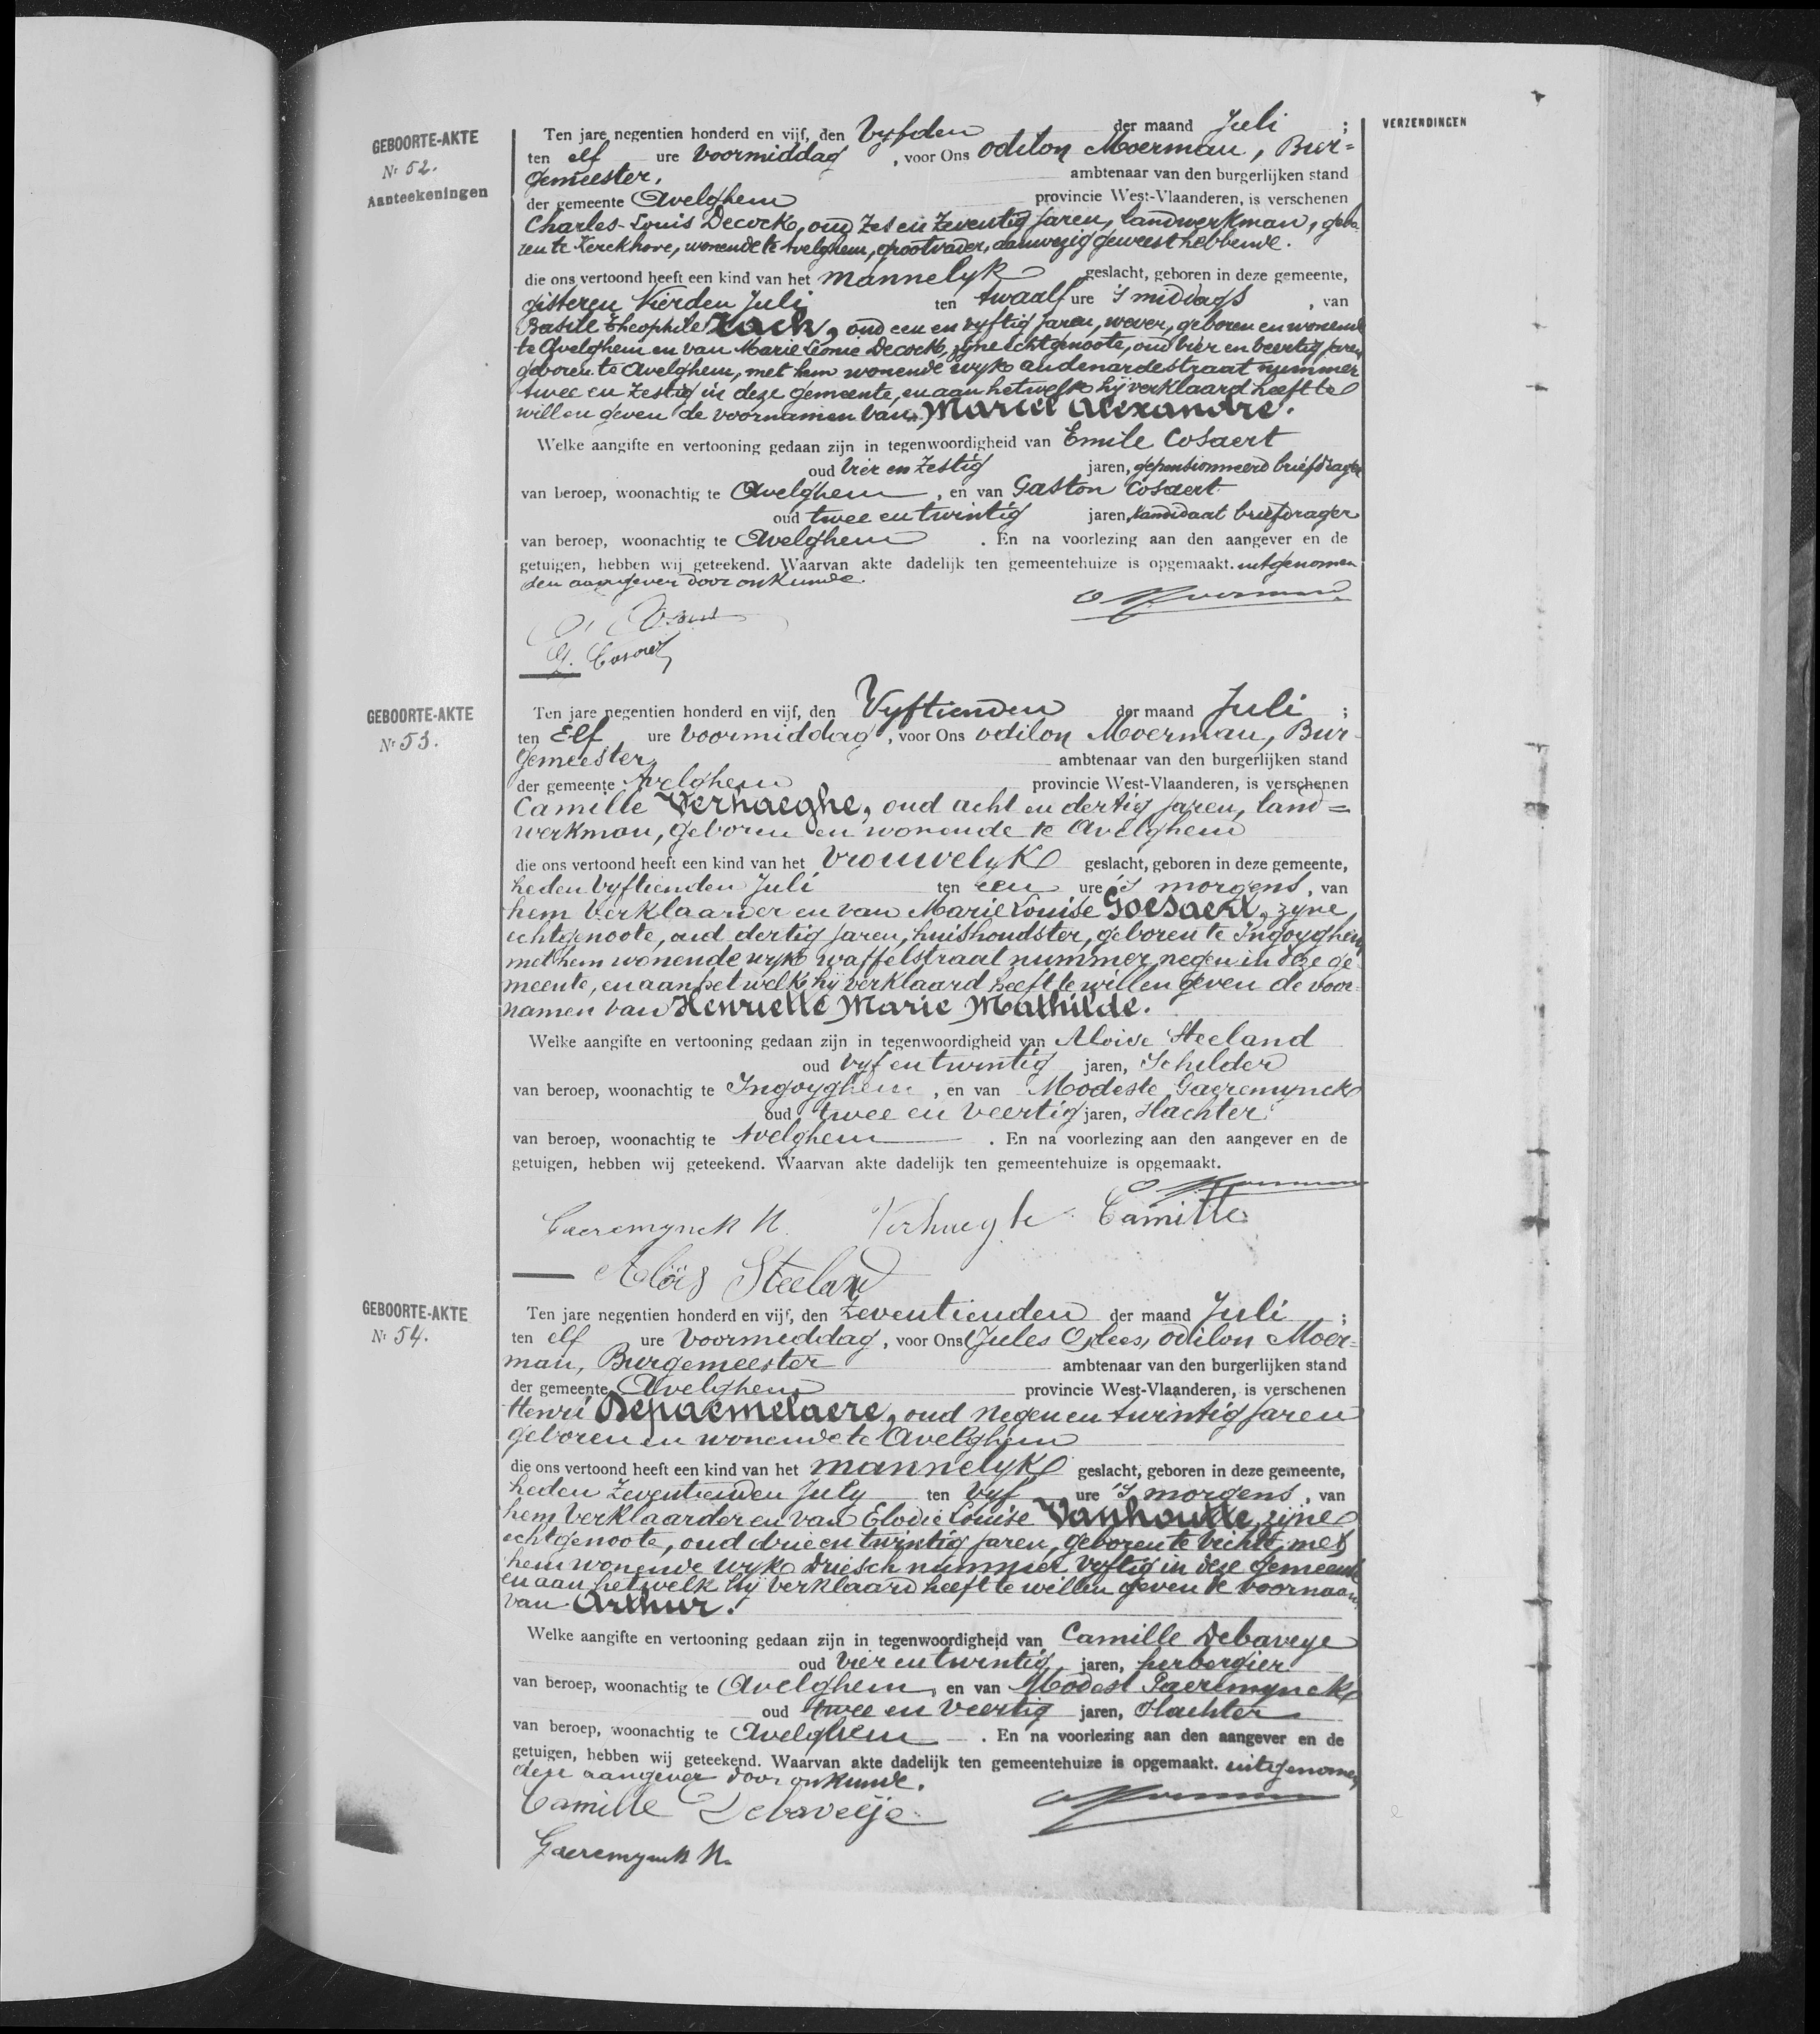 VERZENDINGEN
GEBOORTE-AKTE
Nr 52.
Aanteekeningen
Ten jare negentien honderd en vijf, den Vyfden der maand Juli ;
ten elf ure voormiddag , voor Ons Odilon Moerman, Bur=
gemeester, ambtenaar van den burgerlijken stand
der gemeente Avelghem provincie West-Vlaanderen, is verschenen
Charles-Louis Decock, oud Zes en Zeventig Jaren, landwerkman, gebo-
ren te Kerckhove, wonende te Avelghem, grootvader, aanwezig geweest hebbende.
die ons vertoond heeft een kind van het mannelyk geslacht, geboren in deze gemeente,
gisteren Vierden Juli ten twaalf ure 's middags , van
Basile Theophile , oud een en vyftig Jaren, wever, geboren en wonende
te Avelghem en van Marie Leonie Decock, zyne echtgenoote, oud vier en veertig Jaren
geboren te Avelghem, met hem wonende wyk audenardestraat nummer
twee en Zestig in deze gemeente, en aan hetwelk hij verklaard heeft te
willen geven de voornamen van Marcel Alexandre.
Welke aangifte en vertooning gedaan zijn in tegenwoordigheid van Emile Cosaert
oud Vier en Zestig jaren, gepensionneerd briefdrager
van beroep, woonachtig te Avelghem , en van Gaston Cosaert
oud twee en twintig jaren, Kandidaat briefdrager
van beroep, woonachtig te Avelghem . En na voorlezing aan den aangever en de
getuigen, hebben wij geteekend. Waarvan akte dadelijk ten gemeentehuize is opgemaakt. uitgenomen
den aangever door onkunde.
O Moerman
G. Cosaert
GEBOORTE-AKTE
Nr 53.
Ten jare negentien honderd en vijf, den Vyftienden der maand Juli ;
ten Elf ure voormiddag , voor Ons Odilon Moerman, Bur-
gemeester ambtenaar van den burgerlijken stand
der gemeente Avelghem provincie West-Vlaanderen, is verschenen
Camille Verhaeghe, oud acht en dertig Jaren, land=
werkman, geboren en wonende te Avelghem
die ons vertoond heeft een kind van het vrouwelyk geslacht, geboren in deze gemeente,
heden Vyftienden Juli ten een ure 's morgens , van
hem Verklaarder en van Marie Louise Goesaert, zyne
echtgenoote, oud dertig Jaren, huishoudster, geboren te Ingoyghem
met hem wonende wyk waffelstraat nummer negen in deze ge-
meente, en aan het welk hij verklaard heeft te willen geven de voor-
namen van Henriette Marie Mathilde.
Welke aangifte en vertooning gedaan zijn in tegenwoordigheid van Aloise Steeland
oud Vyf en twintig jaren, Schilder
van beroep, woonachtig te Ingoyghem , en van Modeste Gaeremynck
oud twee en Veertig jaren, Slachter
van beroep, woonachtig te Avelghem . En na voorlezing aan den aangever en de
getuigen, hebben wij geteekend. Waarvan akte dadelijk ten gemeentehuize is opgemaakt.
O Moerman
Gaeremynck M. Verhaeghe Camille
Aloïs Steeland
GEBOORTE-AKTE
Nr 54.
Ten jare negentien honderd en vijf, den Zeventienden der maand Juli ;
ten elf ure Voormiddag , voor Ons Jules Odilon Moer=
man, Burgemeester ambtenaar van den burgerlijken stand
der gemeente Avelghem provincie West-Vlaanderen, is verschenen
Henri Depaemelaere, oud Negen en twintig Jaren
geboren en wonende te Avelghem
die ons vertoond heeft een kind van het mannelyk geslacht, geboren in deze gemeente,
heden Zeventienden July ten Vyf ure 's morgens , van
hem Verklaarder en van Elodie Louise Vanhoutte, zijne
echtgenoote, oud drie en twintig Jaren, geboren te Vichte, met
hem wonende wyk Driesch nummer Vyftig in deze gemeente
en aan hetwelk hij verklaard heeft te willen geven de voornaam
van Arthur.
Welke aangifte en vertooning gedaan zijn in tegenwoordigheid van Camille Debaveye
oud Vier en twintig jaren, herbergier
van beroep, woonachtig te Avelghem , en van Modest Gaeremynck
oud twee en Veertig jaren, Slachter
van beroep, woonachtig te Avelghem . En na voorlezing aan den aangever en de
getuigen, hebben wij geteekend. Waarvan akte dadelijk ten gemeentehuize is opgemaakt. uitgenomen
den aangever door onkunde.
Camille Debaveije O Moerman
Gaeremynck M.